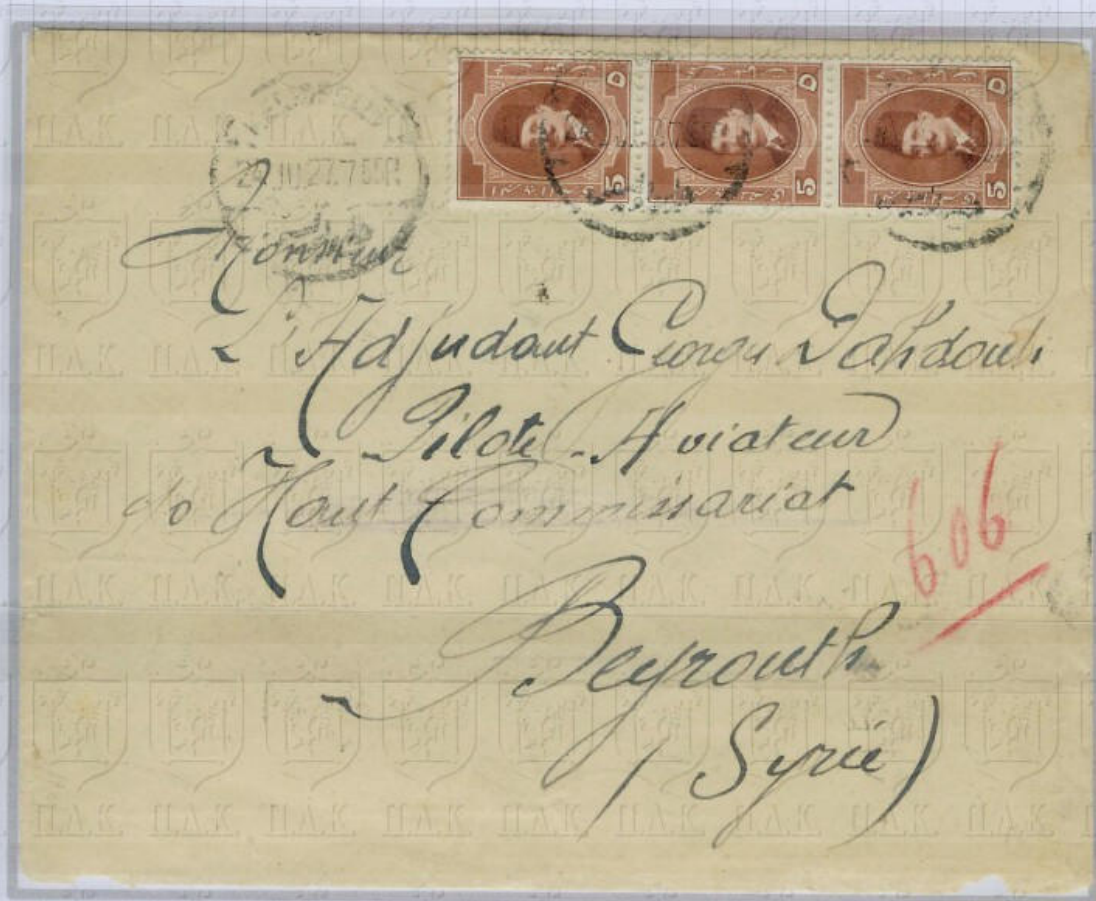 5 5 5
27.7
Monsieur
L'Adjudant George Dahdouh
Pilote-Aviateur
c/o Haut Commissariat
606
Beyrouth
(Syrie)